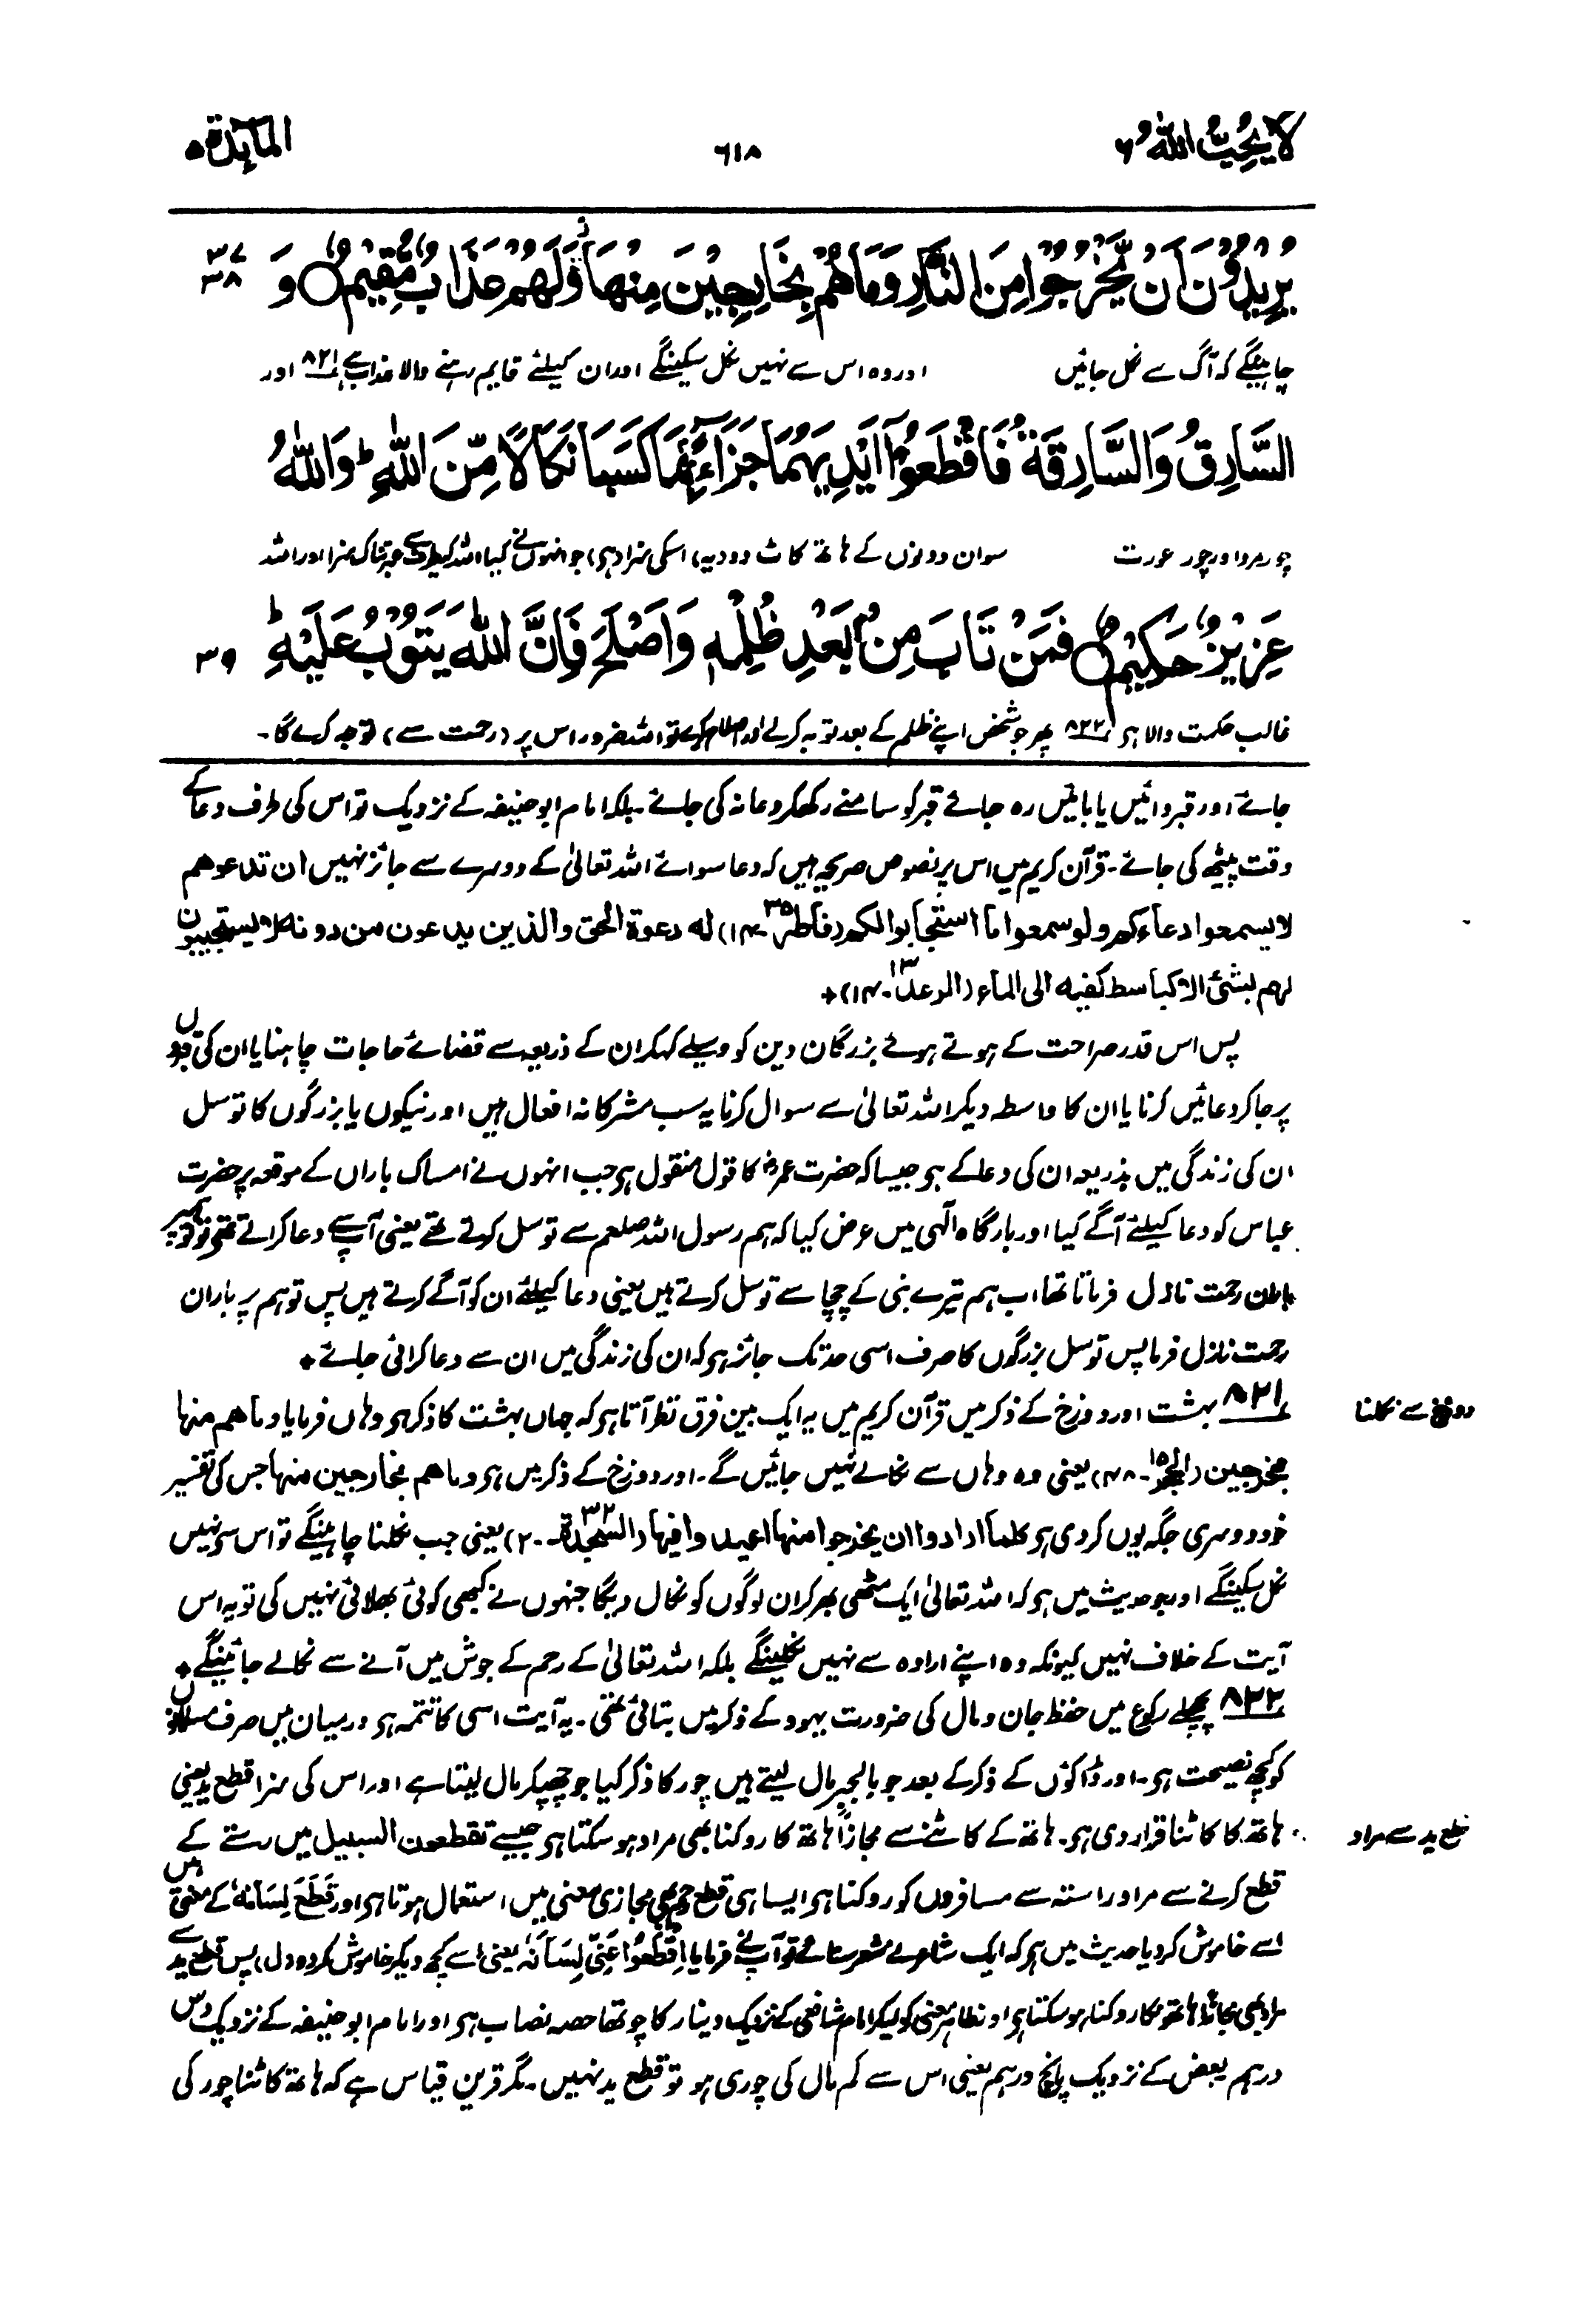 لا یحب اللہ ۶
۶۱۸
المآئدة ۵
یُرِیْدُوْنَ اَنْ یَّخْرُجُوْا مِنَ النَّارِ وَمَا هُمْ بِخَارِجِیْنَ مِنْهَا وَلَهُمْ عَذَابٌ مُّقِیْمٌ ○ وَ
۳۷
۳۸
چاہینگے کہ آگ سے نکل جائیں اور وہ اس سے نہیں نکل سکینگے اور ان کیلئے قایم رہنے والا عذاب ہے ۸۲۱ اور
السَّارِقُ وَالسَّارِقَةُ فَاقْطَعُوْۤا اَیْدِیَهُمَا جَزَآءًۢ بِمَا كَسَبَا نَكَالًا مِّنَ اللّٰهِ ؕ وَاللّٰهُ
چور مرد اور چور عورت سو ان دونوں کے ہاتھ کاٹ دو (یہ) اسکی سزا (ہی) جو انہوں نے کیا اللہ کیطرف سے عبرتناک سزا اور اللہ
عَزِیْزٌ حَكِیْمٌ ○ فَمَنْ تَابَ مِنْۢ بَعْدِ ظُلْمِهٖ وَاَصْلَحَ فَاِنَّ اللّٰهَ یَتُوْبُ عَلَیْهِ ؕ
۳۹
غالب حکمت والا ہی ۸۲۲ پھر جو شخص اپنے ظلم کے بعد توبہ کرلے اور اصلاح کرے تو اللہ ضرور اس پر (رحمت سے) توجہ کرے گا۔
جائے اور قبر دائیں یا بائیں رہ جائے قبر کو سامنے رکھکر دعا نہ کی جائے۔ بلکہ امام ابو حنیفہ کے نزدیک تو اس کی طرف دعا کے
وقت پیٹھ کی جائے۔ قرآن کریم میں اس پر نصوص صریحہ ہیں کہ دعا سوائے اللہ تعالیٰ کے دوسرے سے جائز نہیں ان تدعوهم
لا یسمعوا دعاءکم ولو سمعوا ما استجابوا لکم (فاطر ۳۵۔۱۴) له دعوة الحق والذین یدعون من دونه لا یستجیبون
لهم بشئ الا کباسط کفیه الی الماء (الرعد ۱۳۔۱۴)+
پس اس قدر صراحت کے ہوتے ہوئے بزرگان دین کو وسیلے کہکر ان کے ذریعہ سے قضائے حاجات چاہنا یا ان کی قبروں
پر جاکر دعائیں کرنا یا ان کا واسطہ دیکر اللہ تعالیٰ سے سوال کرنا یہ سب مشرکانہ افعال ہیں اور نیکوں یا بزرگوں کا توسل
ان کی زندگی میں بذریعہ ان کی دعا کے ہی جیسا کہ حضرت عمرؓ کا قول منقول ہی جب انہوں نے امساک باراں کے موقعہ پر حضرت
عباس کو دعا کیلئے آگے کیا اور بارگاہ الٰہی میں عرض کیا کہ ہم رسول اللہ صلعم سے توسل کرتے تھے یعنی آپ سے دعا کراتے تھے تو تو ہم پر
باران رحمت نازل فرماتا تھا اب ہم تیرے نبی کے چچا سے توسل کرتے ہیں یعنی دعا کیلئے ان کو آگے کرتے ہیں پس تو ہم پر باران
رحمت نازل فرما پس توسل بزرگوں کا صرف اسی حد تک جائز ہی کہ ان کی زندگی میں ان سے دعا کرائی جائے+
دوزخ سے نکلنا
۸۲۱ بہشت اور دوزخ کے ذکر میں قرآن کریم میں یہ ایک بین فرق نظر آتا ہی کہ جہاں بہشت کا ذکر ہی وہاں فرمایا وما هم منها
بمخرجین (الحجر ۱۵۔۴۸) یعنی وہ وہاں سے نکالے نہیں جائیں گے۔ اور دوزخ کے ذکر میں ہی وما هم بخارجین منها جس کی تفسیر
خود دوسری جگہ یوں کردی ہی کلما ارادوا ان یخرجوا منها اعیدوا فیها (السجدة ۳۲۔۲۰) یعنی جب نکلنا چاہینگے تو اس سے نہیں
نکل سکینگے اور جو حدیث میں ہی کہ اللہ تعالیٰ ایک مٹھی بھر کر ان لوگوں کو نکال دیگا جنہوں نے کبھی کوئی بھلائی نہیں کی تو یہ اس
آیت کے خلاف نہیں کیونکہ وہ اپنے ارادہ سے نہیں نکلینگے بلکہ اللہ تعالیٰ کے رحم کے جوش میں آنے سے نکالے جائینگے+
۸۲۲ پچھلے رکوع میں حفظ جان و مال کی ضرورت یہود کے ذکر میں بتائی تھی۔ یہ آیت اسی کا تتمہ ہی درمیان میں صرف مسلمانوں
کو کچھ نصیحت ہی۔ اور ڈاکوؤں کے ذکر کے بعد جو بالجبر مال لیتے ہیں چور کا ذکر کیا جو چھپکر مال لیتا ہے اور اس کی سزا قطع ید یعنی
قطع ید سے مراد
ہاتھ کا کاٹنا قرار دی ہی۔ ہاتھ کے کاٹنے سے مجازاً ہاتھ کا روکنا بھی مراد ہوسکتا ہی جیسے تقطعون السبیل میں رستے کے
قطع کرنے سے مراد راستہ سے مسافروں کو روکنا ہی ایسا ہی قطع بھی مجازی معنی میں استعمال ہوتا ہی اور قَطَعَ لِسَانَهٗ کے معنی ہیں
اسے خاموش کردیا حدیث میں ہی کہ ایک شاعر نے شعر سنائے تو آپ نے فرمایا اِقْطَعُوْا عَنِّیْ لِسَانَهٗ یعنی اسے کچھ دیکر خاموش کردو (ل) پس قطع ید سے
مراد بھی مجازاً ہاتھ کا روکنا ہوسکتا ہی اور ظاہر معنی کو لیکر امام شافعی کے نزدیک دینار کا چوتھا حصہ نصاب ہی اور امام ابو حنیفہ کے نزدیک دس
درہم بعض کے نزدیک پانچ درہم یعنی اس سے کم مال کی چوری ہو تو قطع ید نہیں۔ مگر قرین قیاس ہے کہ ہاتھ کاٹنا چور کی